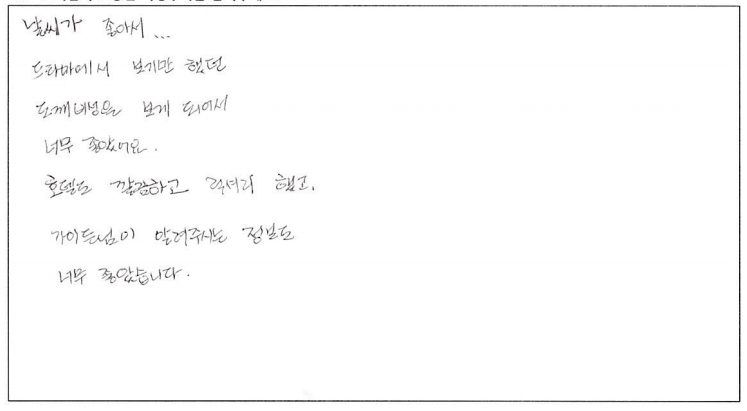 날씨가 좋아서 ...
드라마에서 보기만 했던
도깨비성을 보게 되어서
너무 좋았어요.
호텔도 깔끔하고 럭셔리 했고.
가이드님이 알려주시는 정보도
너무 좋았습니다.